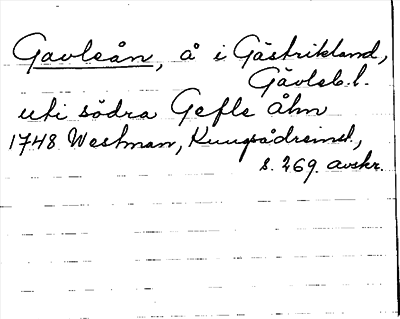 Gavleån, å i Gästrikland,
Gävleb. l.
uti södra Gefle åhn
1748 Westman, Kungsådreinst.,
s. 269. avskr.